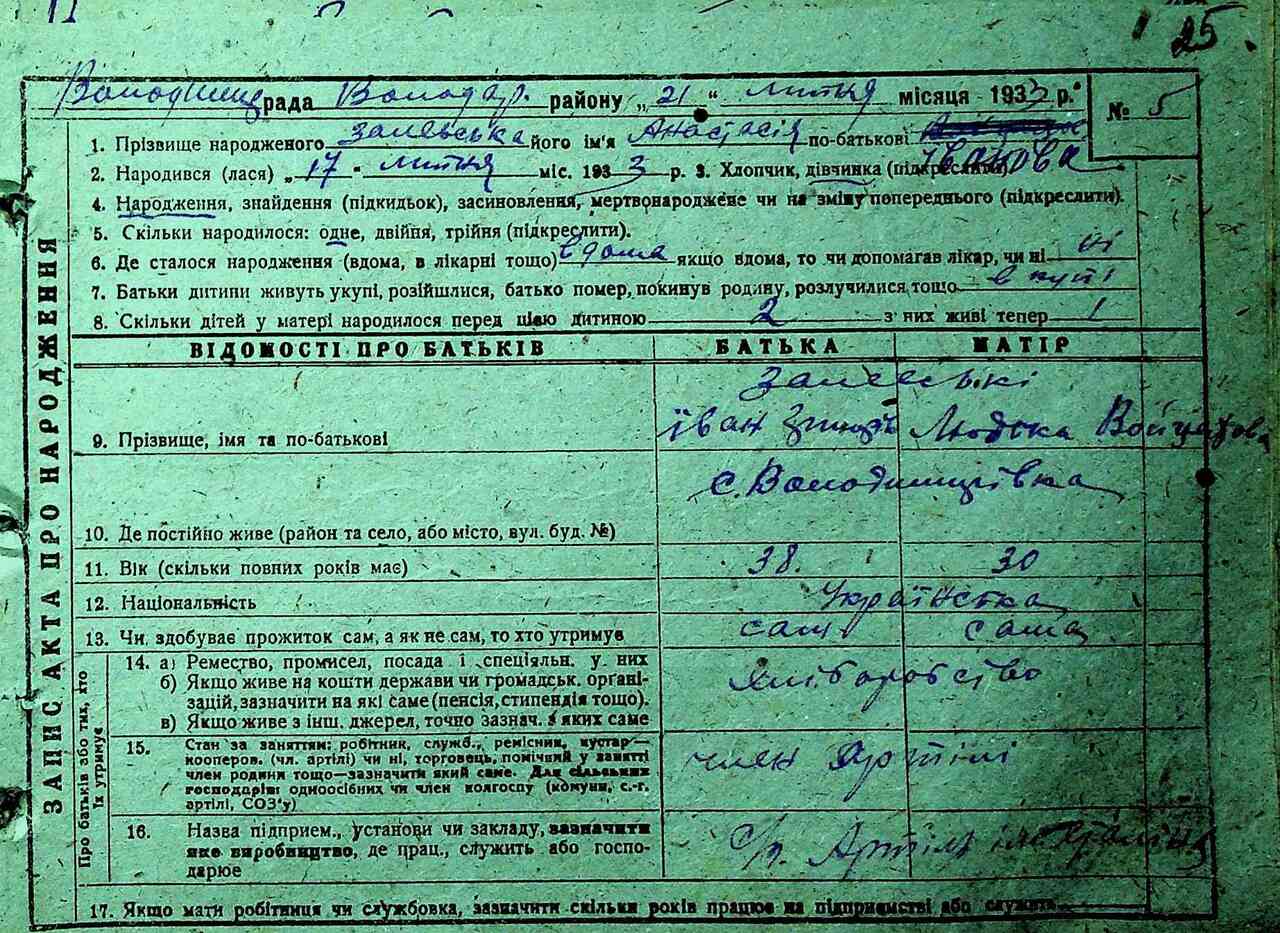 25.
рада Володар. району „21" лютня місяця 1933 р. № 5
1. Прізвище народженого Залевська його ім'я Анастасія по-батькові Іванова
2. Народився (лася) „17" лютня міс. 1933 р. 3. Хлопчик, дівчинка (підкреслити)
4. Народження, знайдення (підкидьок), засиновлення, мертвонароджене чи на зміну попереднього (підкреслити).
5. Скільки народилося: одне, двійня, трійня (підкреслити).
6. Де сталося народження (вдома, в лікарні тощо) вдома якщо вдома, то чи допомагав лікар, чи ні ні
7. Батьки дитини живуть укупі, розійшлися, батько помер, покинув родину, розлучилися тощо в купі
8. Скільки дітей у матері народилося перед цією дитиною 2 з них живі тепер 1
ЗАПИС АКТА ПРО НАРОДЖЕННЯ
ВІДОМОСТІ ПРО БАТЬКІВ БАТЬКА МАТІР
Залевські
9. Прізвище, імя та по-батькові Іван Людька
с.
10. Де постійно живе (район та село, або місто, вул. буд. №)
11. Вік (скільки повних років має) 38. 30
12. Національність Українська
13. Чи здобуває прожиток сам, а як не сам, то хто утримує сам сама
Про батьків або тих, хто
їх утримує
14. а) Ремество, промисел, посада і спеціяльн. у них
б) Якщо живе на кошти держави чи громадськ. органі-
зацій, зазначити на які саме (пенсія, стипендія тощо).
в) Якщо живе з інш. джерел, точно зазнач. з яких саме
хліборобство
15. Стан за заняттям: робітник, служб., ремісник, кустар—
кооперов. (чл. артілі) чи ні, торговець, помічний у занятті
член родини тощо—зазначити який саме. Для сільських
господарів: одноосібних чи член колгоспу (комуни, с.-г.
артілі, СОЗ'у)
член Артілі
16. Назва підприєм., установи чи закладу, зазначити
яке виробництво, де прац., служить або госпо-
дарює
Артіль ім.
17. Якщо мати робітниця чи службовка, зазначити скільки років працює на підприємстві або служить